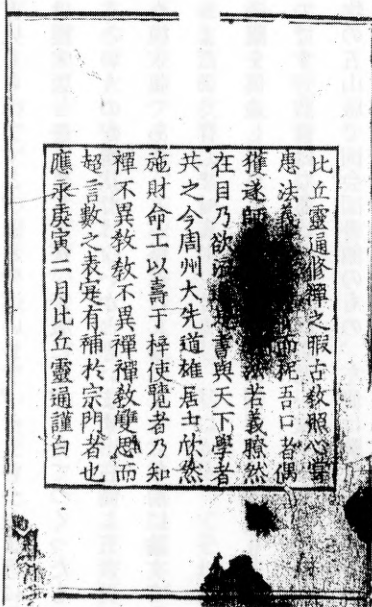 比丘靈通修禪之暇古教照心嘗
患法義而梔吾口者偶
獲遂師然若義瞭然
在目乃欲書與天下學者
共之今周州大先道雄居士欣然
施財命工以壽于梓使覽者乃知
禪不異教教不異禪禪教雙思而
超言數之表寔有補於宗門者也
應永庚寅二月比丘靈通謹白